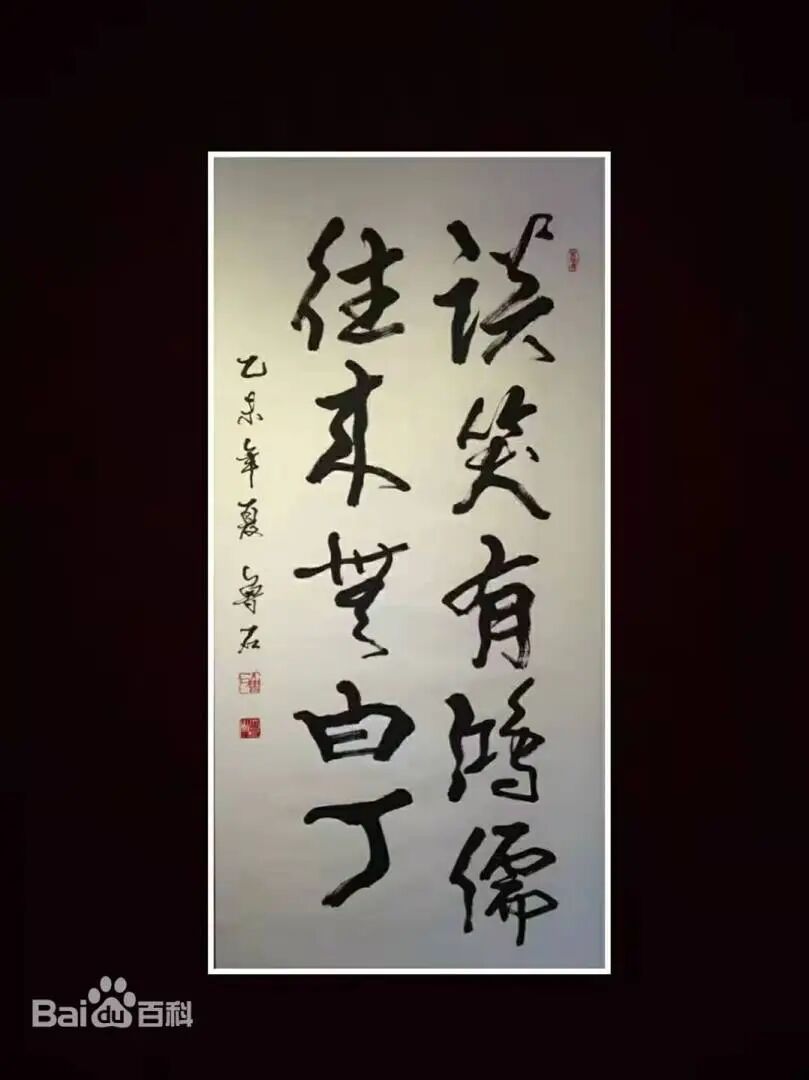 談笑有鴻儒
往來無白丁
乙未年夏 魯石
Baidu百科